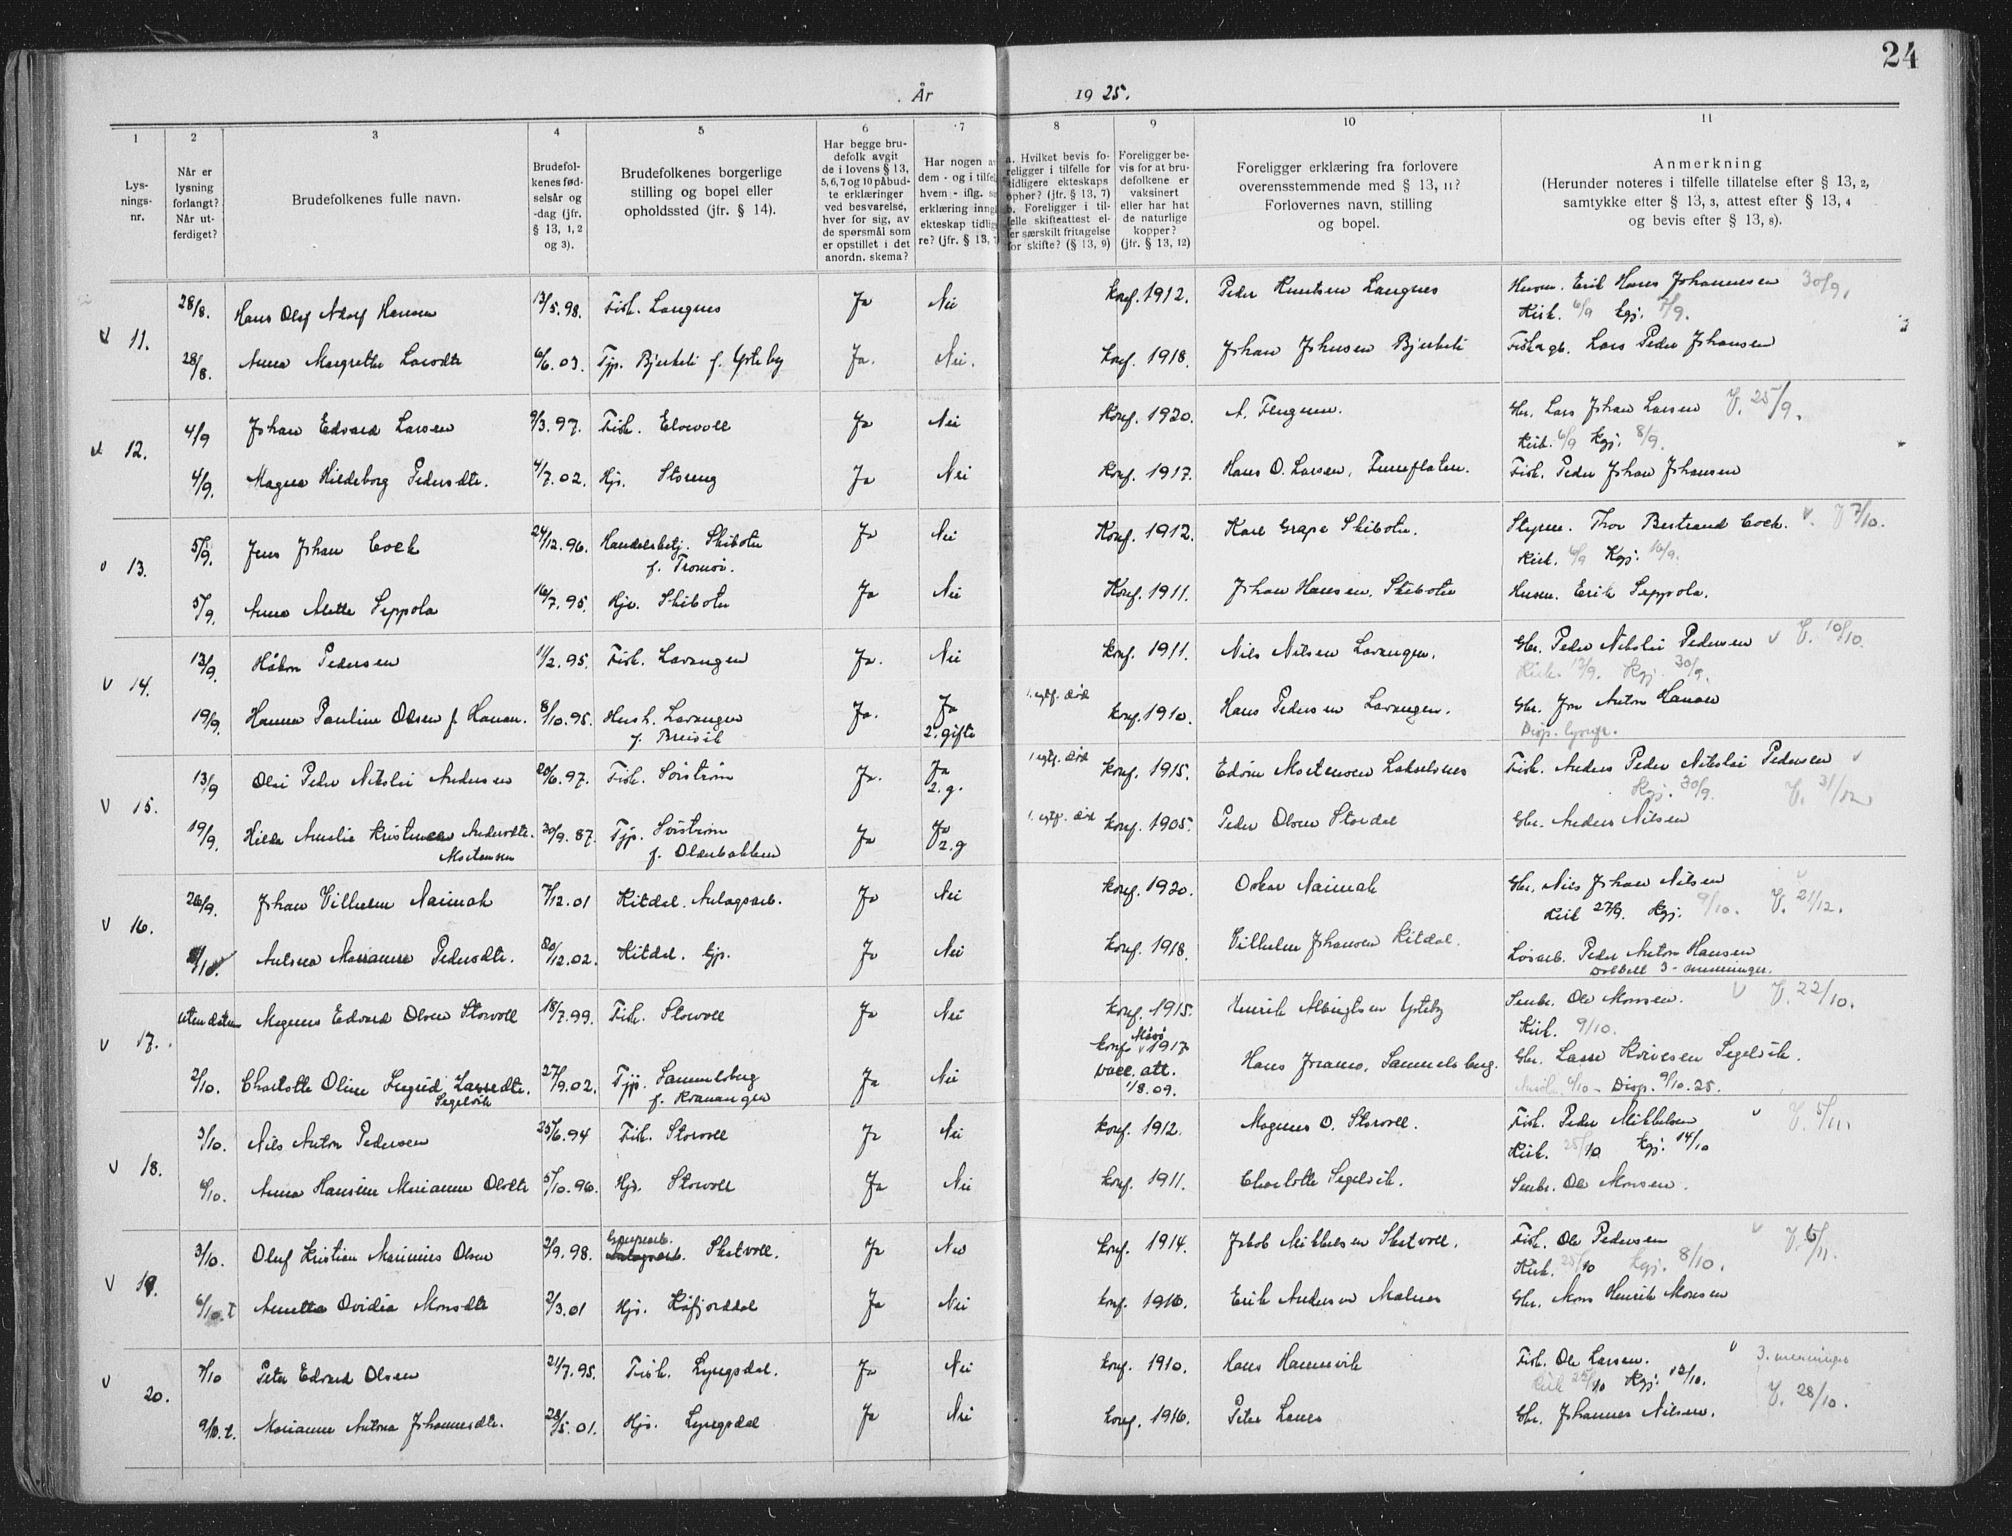 24
År 1925.
1 2 3 4 5 6 7 8 9 10 11
Lys-
nings-
nr.
Når er
lysning
forlangt?
Når ut-
ferdiget?
Brudefolkenes fulle navn.
Brudefol-
kenes fød-
selsår og
-dag (jfr.
§ 13, 1, 2
og 3).
Brudefolkenes borgerlige
stilling og bopel eller
opholdssted (jfr. § 14).
Har begge bru-
defolk avgit
de i lovens § 13,
5, 6, 7 og 10 påbud-
te erklæringer
ved besvarelse,
hver for sig, av
de spørsmål som
er opstillet i det
anordn. skema?
Har nogen a
dem - og i tilfel
hvem - iflg. s
erklæring inng
ekteskap tidlig
re? (jfr. § 13, 7
a. Hvilket bevis fo-
religger i tilfelle for
tidligere ekteskaps
ophør? (jfr. § 13, 7)
b. Foreligger i til-
felle skifteattest el-
ler særskilt fritagelse
for skifte? (§ 13, 9)
Foreligger be-
vis for at bru-
defolkene er
vaksinert
eller har hat
de naturlige
kopper?
(jfr. § 13, 12)
Foreligger erklæring fra forlovere
overensstemmende med § 13, 11?
Forlovernes navn, stilling
og bopel.
Anmerkning
(Herunder noteres i tilfelle tillatelse efter § 13, 2,
samtykke efter § 13, 3, attest efter § 13, 4
og bevis efter § 13, 8).
11. 28/8. Hans Olaf Adolf Hansen 13/5.98. Fisk. Langnes Ja Nei konf. 1912. Peder Knutsen Langnes Erik Hans Johannesen 30/9.
Kirk. 6/9 kgj. 7/9.
28/8. Anna Margrethe Larsdtr 6/6.03. Tjp. Bjerkeli f. Ytteby Ja. Nei. konf. 1918. Johan Johnsen Bjerkeli Lars Peder Johansen
12. 4/9 Johan Edvard Larsen 9/3.97. Fisk. Elvevoll Ja Nei Konf. 1920. Gbr. Lars Johan Larsen V. 25/9.
Kirk. 6/9 Kgj. 8/9.
4/9. Magna Hildeborg Pedersdtr. 4/7.02. Hjs. Storeng Ja Nei konf. 1917. Hans O. Larsen, Furuflaten. Fisk. Peder Johan Johansen
13. 5/9. Jens Johan Cock 24/12.96. Handelsbetj. Skibotn Ja Nei Konf. 1912. Karl Grape Skibotn. Thor Bertrand Cock. V 7/10.
f. Tromsø. Kirk. 6/9 Kgj. 16/9.
5/9. Anna Mette Seppola 16/7.95. Hjs. Skibotn Ja Nei Konf. 1911. Johan Hansen, Skibotn Erik Seppola.
14. 13/9. Håkon Pedersen 11/2.95. Fisk. Lavangen Ja. Nei konf. 1911. Nils Nilsen Lavangen. Gbr. Peder Nikolai Pedersen V. 10/10.
Kirk. 13/9. Kgj. 30/9.
19/9. Hanna Pauline Olsen f. Hanan. 8/10.95. Hush. Lavangen Ja. Ja 1. egtf. død konf. 1910. Hans Pedersen Lavangen. Gbr. Jon Anton Hanan
f. Breivik 2. gifte Disp. Lyngs.
15. 13/9 Olai Peder Nikolai Andersen 20/6.97. Fisk. Sörström Ja. Ja 1 egtf. død konf. 1915. Edvin Mortensen Lakselvnes Fisk. Anders Peder Nikolai Pedersen
2. g. Kgj. 30/9. V. 31/12
19/9. Hilda Amalia Andersdtr. 30/9.87. Tjp. Sörström Ja Ja 1. egtf. død konf. 1905. Peder Olsen Stordal Gbr. Anders Nilsen
Mortensen f. Olderbakken 2. g
16. 26/9. Johan Vilhelm Naimak 7/12.01 Kitdal. Anlagsarb. Ja Nei konf. 1920. Oskar Naimak Gbr. Nils Johan Nilsen
Kirk 27/9. Kgj. 9/10. V. 21/12.
Antona Marianne Pedersdtr. 30/12.02. Kitdal. tjp. Ja Nei konf. 1918. Vilhelm Johansen Kitdal. Løsarb. Peder Anton Hansen
Dobbelt 3-menninger.
17. uten datum Magnus Edvard Olsen Storvoll 18/7.99. Fisk. Storvoll Ja Nei konf. 1915. Henrik Albrigtsen Ytteby Ole Monsen. V. 22/10.
Kirk. 9/10.
2/10. Charlotte Oline Ingrid Larsedtr. 27/9.02. Tjp. Samuelsberg Ja Nei konf. 1917 Hans Samuelsberg. Gbr. Lasse Segelvik.
Segelvik f. Kvænangen vacc. att. Disp. 9/10.25.
1/8.09.
18. 3/10. Nils Anton Pedersen 25/6.94 Fisk. Storvoll Ja Nei konf. 1912. Magnus O. Storvoll. Fisk. Peder Mikkelsen V. 5/11
Kirk. 25/10 kgj. 14/10
6/10. Anna Hansine Marianne Olsdtr 5/10.96. Hjs. Storvoll Ja Nei konf. 1911. Charlotte Segelvik. Ole Monsen.
19. 3/10. Oluf Kristian Marinius Olsen 2/9.98. Skatvoll. Ja Nei konf. 1914. Jakob Mikkelsen Skatvoll. Fisk. Ole Pedersen V. 6/11.
Kirk. 25/10 Kgj. 8/10.
6/10. t Anetta Ovidia Monsdtr 2/3.01 Hjs. Kåfjorddal Ja Nei konf. 1916. Erik Andersen Malnes Gbr. Mons Henrik Monsen
20. 7/10 Peter Edvard Olsen 21/7.95. Fisk. Lyngsdal. Ja Nei konf. 1910. Hans Hamnvik Fisk. Ole Larsen. 3. menninger
Kirk 25/10 Kgj. 12/10. V. 28/10.
9/10. t. Marianne Antona Johannesdtr. 28/5.01. Hjs. Lyngsdal Ja Nei konf. 1916. Peter Lanes Gbr. Johannes Nilsen.